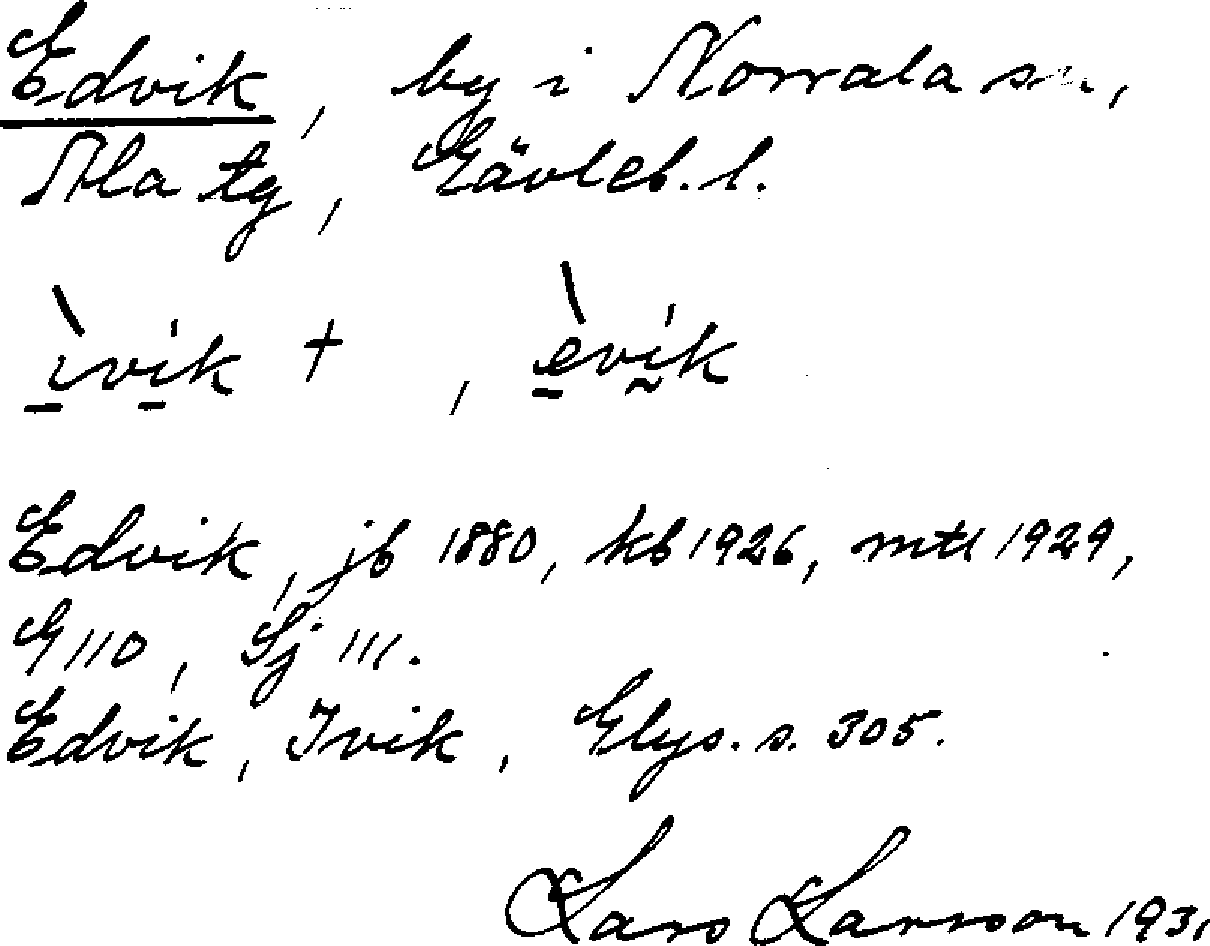 Edvik, by i Norrala sn,
Ala tg, Gävleb. l.
ìvik + , èvik
Edvik, jb 1880, kb 1926, mtl 1929,
G 110, Sj 111.
Edvik, Ivik, Glys. s. 305.
Lars Larsson 1931